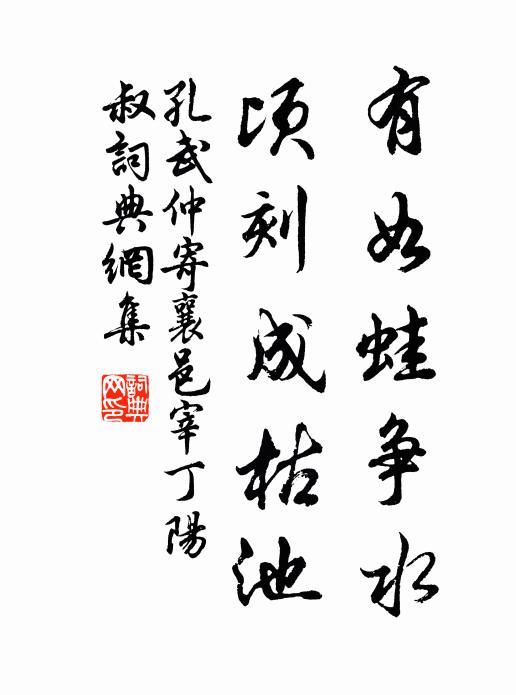 有如蛙争水
頃刻成枯池
孔武仲寄襄邑宰丁陽
叔詞典網集
詞典网印